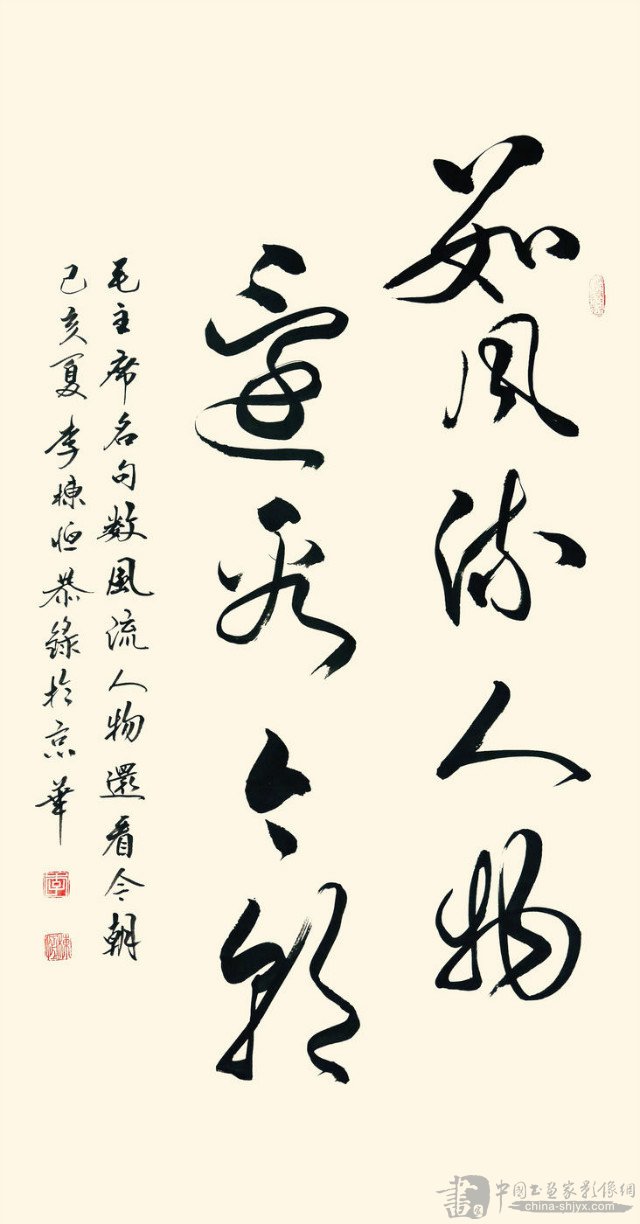 数风流人物
還看今朝
毛主席名句数風流人物還看今朝
己亥夏李棟恒恭錄於京華
書 中国书画家影像網
china-shjyx.com